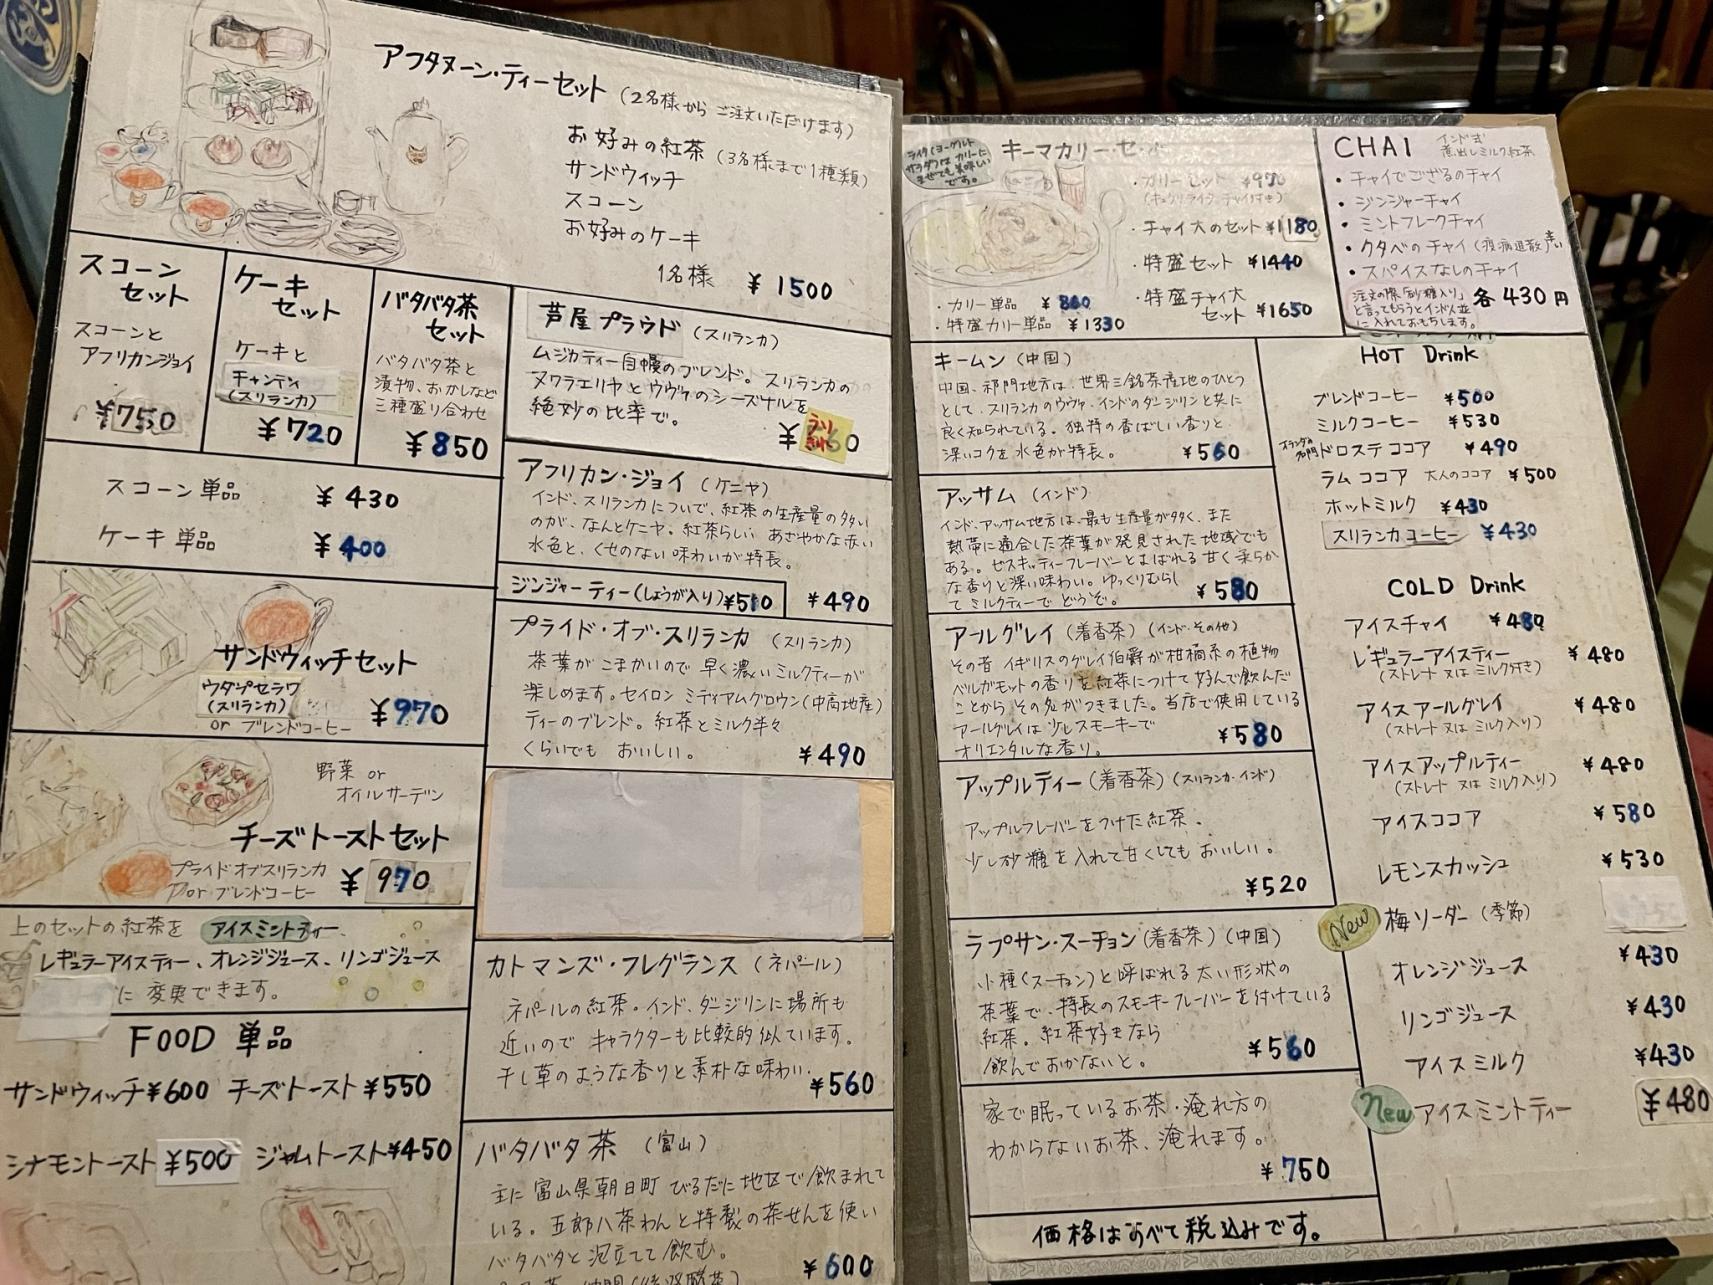 アフタヌーン・ティーセット (2名様からご注文いただけます)
お好みの紅茶 (3名様まで1種類)
サンドウィッチ
スコーン
お好みのケーキ
1名様 ¥1500
スコーン
セット
スコーンと
アフリカンジョイ
¥750
ケーキ
セット
ケーキと
キャンディ
(スリランカ)
¥720
バタバタ茶
セット
バタバタ茶と
漬物、おかしなど
三種盛り合わせ
¥850
スコーン単品 ¥430
ケーキ単品 ¥400
サンドウィッチセット
ウダプセラワ
(スリランカ)
or ブレンドコーヒー
¥970
野菜 or
オイルサーデン
チーズトーストセット
プライドオブスリランカ
or ブレンドコーヒー
¥970
上のセットの紅茶を アイスミントティー、
レギュラーアイスティー、オレンジジュース、リンゴジュース
に変更できます。
FOOD 単品
サンドウィッチ¥600 チーズトースト¥550
シナモントースト¥500 ジャムトースト¥450
芦屋プラウド (スリランカ)
ムジカティー自慢のブレンド。スリランカの
ヌワラエリヤとウヴァのシーズナルを
絶妙の比率で。
¥ 60
うり
きれ
アフリカン・ジョイ (ケニヤ)
インド、スリランカについで、紅茶の生産量の多い
のが、なんとケニヤ。紅茶らしい あざやかな赤い
水色と、くせのない味わいが特長。
ジンジャーティー(しょうが入り)¥510
¥490
プライド・オブ・スリランカ (スリランカ)
茶葉がこまかいので早く濃いミルクティーが
楽しめます。セイロン ミディアムグロウン(中高地産)
ティーのブレンド。紅茶とミルク半々
くらいでも おいしい。
¥490
カトマンズ・フレグランス (ネパール)
ネパールの紅茶。インド、ダージリンに場所も
近いので キャラクターも比較的似ています。
干し草のような香りと素朴な味わい。
¥560
バタバタ茶 (富山)
主に富山県朝日町 びるだに地区で飲まれて
いる。五郎八茶わんと特製の茶せんを使い
バタバタと泡立てて飲む。
¥600
ライタ(ヨーグルト
サラダ)は カリーに
まぜても美味しい
です。
キーマカリー・セット
・カリーセット ¥970
・チャイ大のセット ¥1180
・特盛セット ¥1440
・特盛チャイ大
セット ¥1650
・カリー単品 ¥860
・特盛カリー単品 ¥1330
CHAI インド式
煮出しミルク紅茶
・チャイでござるのチャイ
・ジンジャーチャイ
・ミントフレークチャイ
・クタベのチャイ(疫病退散)辛い
・スパイスなしのチャイ
注文の際「砂糖入り」
と言ってもらうとインド人並
に入れておもちします。
各430円
キームン (中国)
中国、祁門地方は、世界三銘茶産地のひとつ
として、スリランカのウヴァ、インドのダージリンと共に
良く知られている。独特の香ばしい香りと、
深いコクと水色が特長。
¥560
アッサム (インド)
インド、アッサム地方は、最も生産量が多く、また
熱帯に適合した茶葉が発見された地域でも
ある。ゼスキッティーフレーバーとよばれる甘く柔らか
な香りと深い味わい。ゆっくりむらし
て ミルクティーで どうぞ。
¥580
アールグレイ (着香茶) (インド・その他)
その昔 イギリスのグレイ伯爵が柑橘系の植物
ベルガモットの香りを紅茶につけて好んで飲んだ
ことから その名がつきました。当店で使用している
アールグレイは少しスモーキーで
オリエンタルな香り。
¥580
アップルティー (着香茶) (スリランカ・インド)
アップルフレーバーをつけた紅茶。
少し砂糖を入れて甘くしてもおいしい。
¥520
ラプサン・スーチョン (着香茶) (中国)
小種(スーチョン)と呼ばれる太い形状の
茶葉で、特長のスモーキーフレーバーを付けている
紅茶。紅茶好きなら
飲んでおかないと。
¥560
家で眠っているお茶・淹れ方の
わからないお茶、淹れます。
¥750
価格はすべて税込みです。
HOT Drink
ブレンドコーヒー ¥500
ミルクコーヒー ¥530
オランダの
名門 ドロステココア ¥490
ラムココア 大人のココア ¥500
ホットミルク ¥430
スリランカコーヒー ¥430
COLD Drink
アイスチャイ ¥480
レギュラーアイスティー ¥480
(ストレート又はミルク付き)
アイスアールグレイ ¥480
(ストレート又はミルク入り)
アイスアップルティー ¥480
(ストレート又はミルク入り)
アイスココア ¥580
レモンスカッシュ ¥530
New 梅ソーダー (季節)
オレンジジュース ¥430
リンゴジュース ¥430
アイスミルク ¥430
New アイスミントティー ¥480